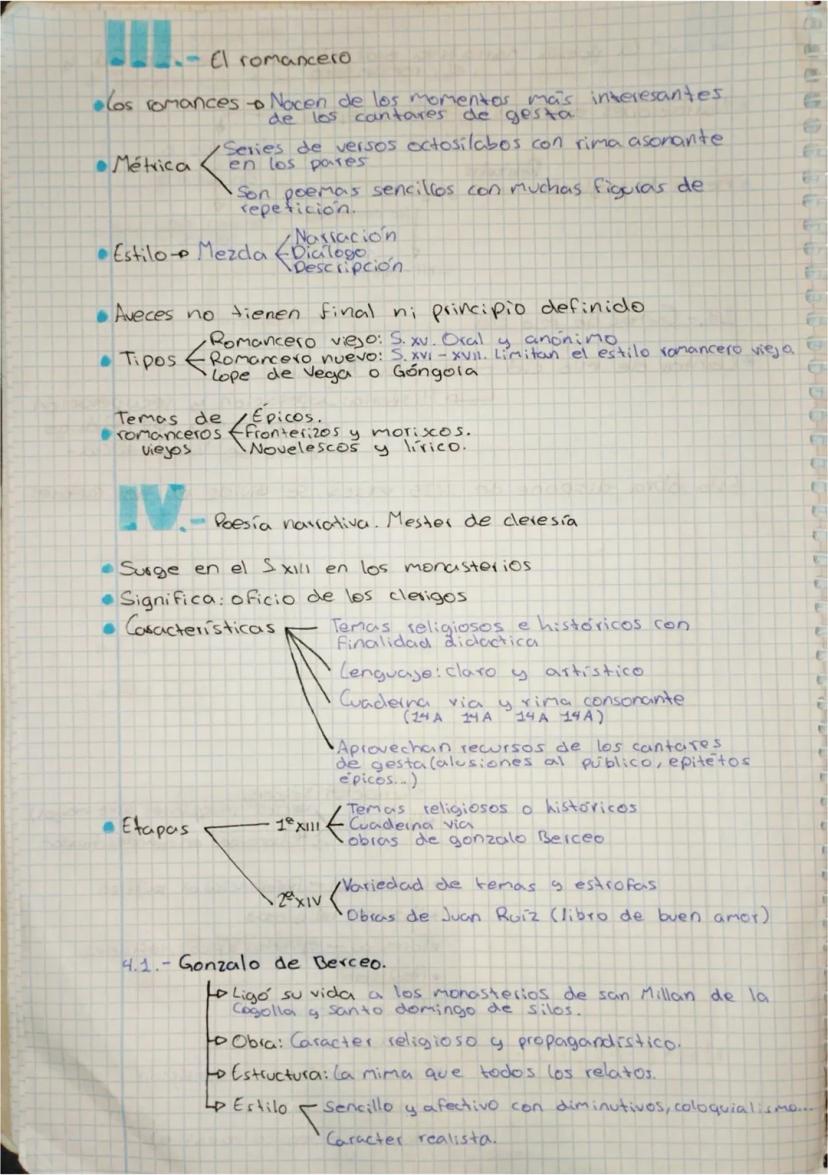 III.- El romancero
• Los romances → Nacen de los momentos más interesantes
de los cantares de gesta
• Métrica
Series de versos octosílabos con rima asonante
en los pares
Son poemas sencillos con muchas figuras de
repetición.
• Estilo → Mezcla
Narración
Diálogo
Descripción
• Aveces no tienen final ni principio definido
• Tipos
Romancero viejo: S. XV. Oral y anónimo
Romancero nuevo: S. XVI - XVII. Limitan el estilo romancero viejo
Lope de Vega o Góngola
• Temas de
romanceros
viejos
Épicos.
Fronterizos y moriscos.
Novelescos y lírico.
IV.- Poesía narrativa. Mester de cleresía
• Surge en el S XIII en los monasterios
• Significa: oficio de los clerigos
• Características
Temas religiosos e históricos con
finalidad didactica
Lenguaje: claro y artístico
Cuaderna via y rima consonante
(14A 14A 14A 14A)
Aprovechan recursos de los cantares
de gesta (alusiones al público, epitetos
épicos...)
• Etapas
1ª XIII
Temas religiosos o históricos
Cuaderna via
obras de gonzalo Berceo
2ª XIV
Variedad de temas y estrofas
Obras de Juan Ruiz (libro de buen amor)
4.1.- Gonzalo de Berceo.
↳ Ligó su vida a los monasterios de san Millan de la
Cogolla y santo domingo de silos.
↳ Obra: Caracter religioso y propagandístico.
↳ Estructura: La mima que todos los relatos.
↳ Estilo
Sencillo y afectivo con diminutivos, coloquialismo...
Caracter realista.